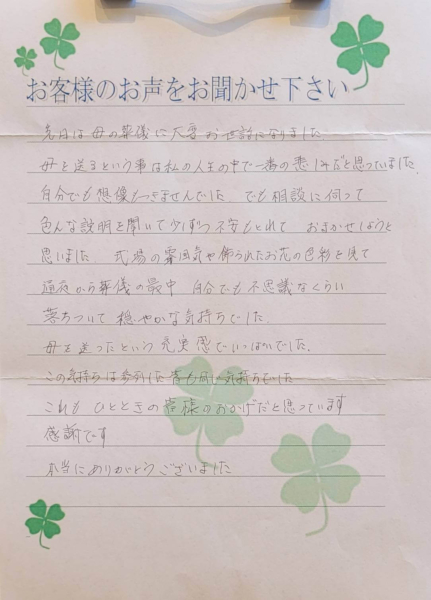 お客様のお声をお聞かせ下さい
先日は母の葬儀に大変お世話になりました
母を送るという事は私の人生の中で一番の悲しみだと思っていました
自分でも想像もつきませんでした でも相談に伺って
色んな説明を聞いて少しずつ不安もとれて おまかせしようと
思いました 式場の雰囲気や飾られたお花の色彩を見て
通夜から葬儀の最中 自分でも不思議なくらい
落ちついて 穏やかな気持ちでした
母を送ったという充実感でいっぱいでした。
この気持ちは参列した者も同じ気持ちでした
これも ひとときの皆様のおかげだと思っています
感謝です
本当にありがとうございました